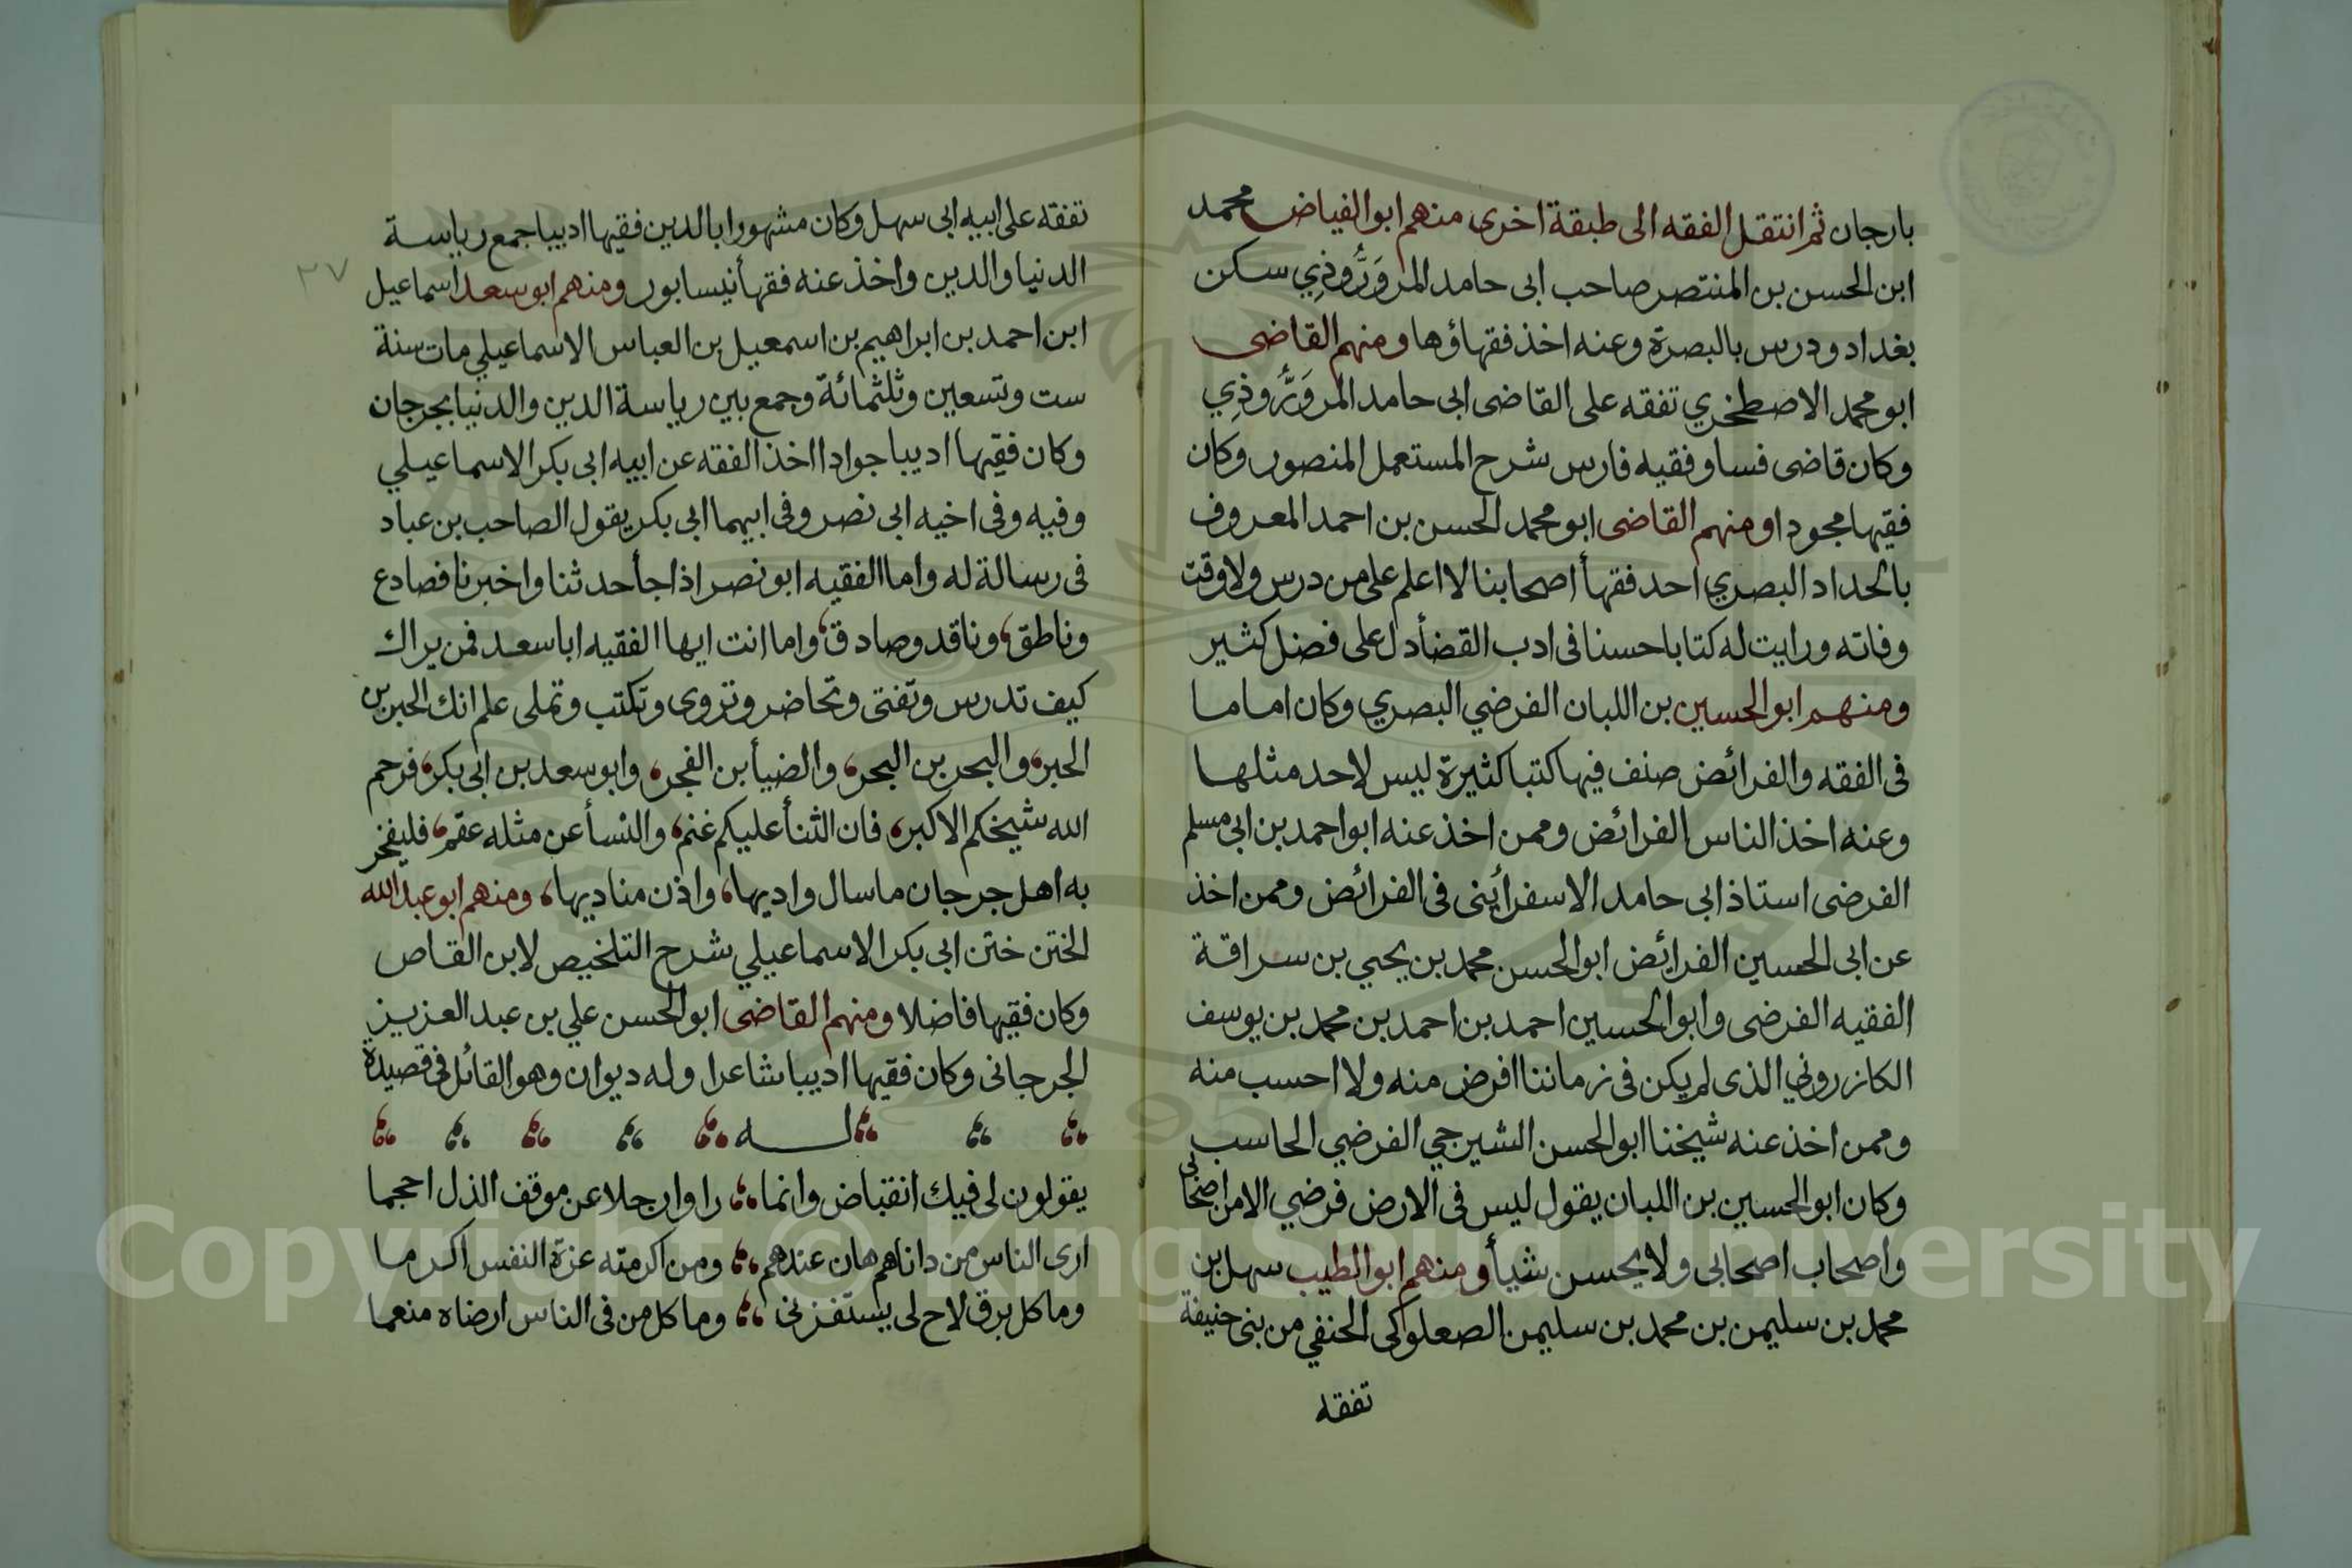 بارجان ثم انتقل الفقه الى طبقة اخرى منهم ابو الفياض محمد
ابن الحسن بن المنتصر صاحب ابى حامد المروَرُّوذِي سكن
بغداد ودرس بالبصرة وعنه اخذ فقهاؤها ومنهم القاضى
ابو محمد الاصطخري تفقه على القاضى ابى حامد المروَرُّوذِي
وكان قاضى فسا وفقيه فارس شرح المستعمل المنصور وكان
فقيها مجودا ومنهم القاضى ابو محمد الحسن بن احمد المعروف
بالحداد البصري احد فقهأ اصحابنا لا اعلم على من درس ولا وقت
وفاته ورايت له كتابا حسنا فى ادب القضأ دل على فضل كثير
ومنهم ابو الحسين بن اللبان الفرضي البصري وكان اماما
فى الفقه والفرائض صنف فيها كتبا كثيرة ليس لاحد مثلها
وعنه اخذ الناس الفرائض وممن اخذ عنه ابو احمد بن ابى مسلم
الفرضى استاذ ابى حامد الاسفرأينى فى الفرائض وممن اخذ
عن ابى الحسين الفرائض ابو الحسن محمد بن يحيي بن سراقة
الفقيه الفرضى وابو الحسين احمد بن احمد بن محمد بن يوسف
الكازروني الذى لم يكن فى زماننا افرض منه ولا احسب منه
وممن اخذ عنه شيخنا ابو الحسن الشيرجي الفرضي الحاسب
وكان ابو الحسين بن اللبان يقول ليس فى الارض فرضي الا من اصحابى
واصحاب اصحابى ولا يحسن شيأ ومنهم ابو الطيب سهل بن
محمد بن سليمن بن محمد بن سليمن الصعلوكى الحنفي من بنى حنيفة
تفقه
تفقه على ابيه ابى سهل وكان مشهورا بالدين فقيها اديبا جمع رياسة
٢٧
الدنيا والدين واخذ عنه فقهأ نيسابور ومنهم ابو سعد اسماعيل
ابن احمد بن ابراهيم بن اسمعيل بن العباس الاسماعيلي مات سنة
ست وتسعين وثلثمائة وجمع بين رياسة الدين والدنيا بجرجان
وكان فقيها اديبا جوادا اخذ الفقه عن ابيه ابى بكر الاسماعيلي
وفيه وفى اخيه ابى نصر وفى ابيهما ابى بكر يقول الصاحب بن عباد
فى رسالة له واما الفقيه ابو نصر اذا جأ حدثنا واخبرنا فصادع
وناطق، وناقد وصادق، واما انت ايها الفقيه ابا سعد فمن يراك
كيف تدرس وتفتى وتحاضر وتروى وتكتب وتملى علم انك الحبر بن
الحبر، والبحر بن البحر، والضيأ بن الفجر، وابو سعد بن ابى بكر، فرحم
الله شيخكم الاكبر، فان الثنأ عليكم غنم، والنسأ عن مثله عقم، فليفخر
به اهل جرجان ما سال واديها، واذن مناديها، ومنهم ابو عبد الله
الختن ختن ابى بكر الاسماعيلي شرح التلخيص لابن القاص
وكان فقيها فاضلا ومنهم القاضى ابو الحسن علي بن عبد العزيز
الجرجانى وكان فقيها اديبا شاعرا وله ديوان وهو القائل فى قصيدة
له
يقولون لى فيك انقباض وانما ،، راوا رجلا عن موقف الذل احجما
ارى الناس من داناهم هان عندهم ،، ومن اكرمته عزة النفس اكرما
وما كل برق لاح لى يستفزنى ،، وما كل من فى الناس ارضاه منعما
Copyright © King Saud University